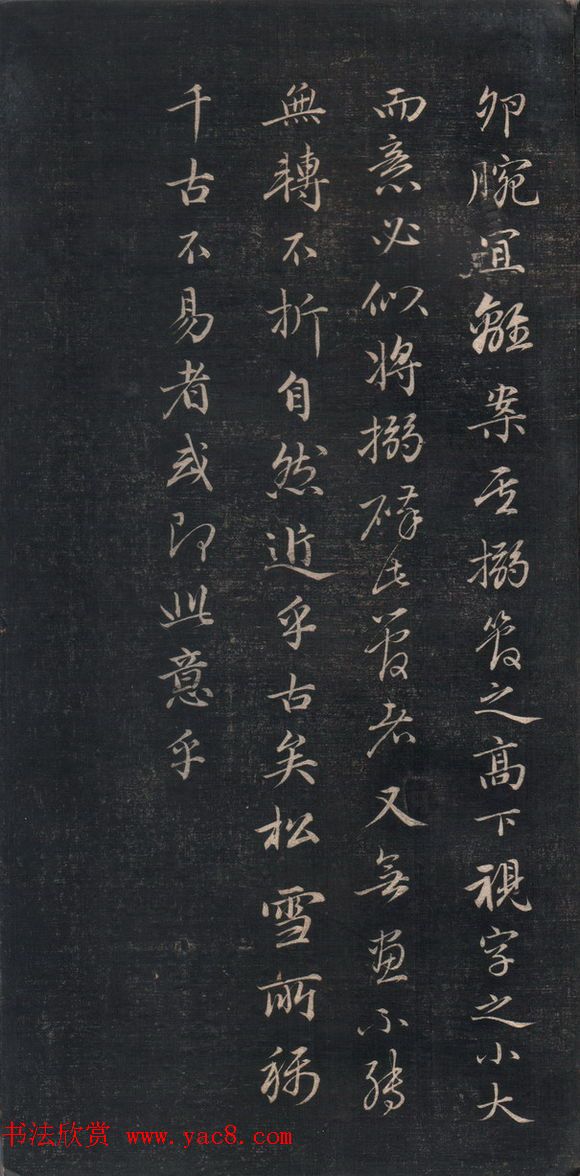 卵腕宜離案至搦管之高下視字之小大
而意必似將搦碎此管者又無畫不轉
無轉不折自然近乎古矣松雪所稱
千古不易者或即此意乎
书法欣赏 www.yac8.com